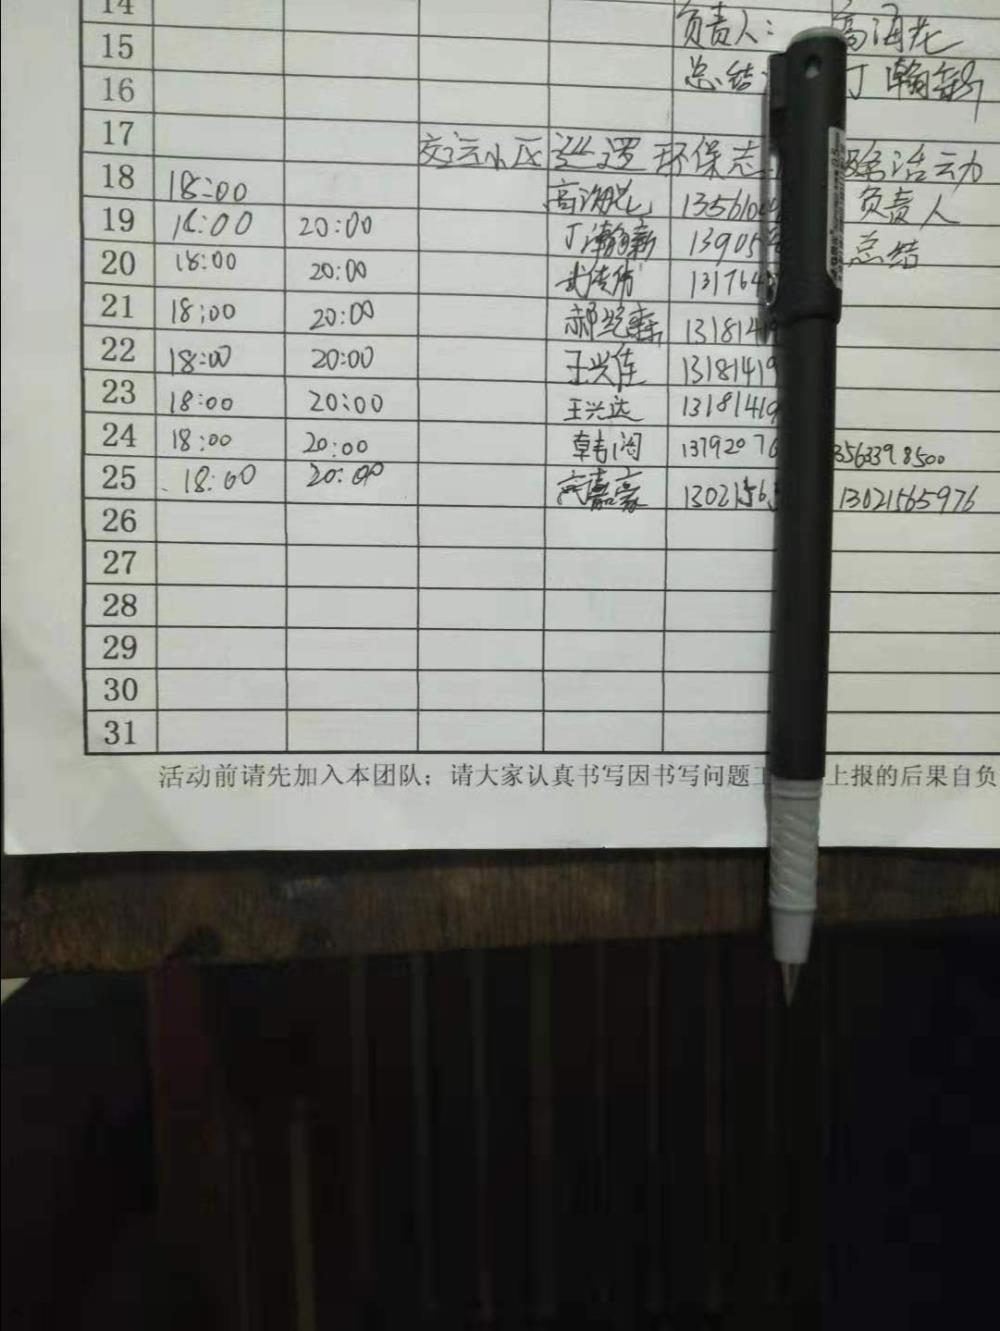 14
负责人: 高海花
15
总结: 丁瀚新
16
17 交运小区 巡逻 环保志 活动
18 18:00 高海花 1356104 负责人
19 18:00 20:00 丁瀚新 13905 总结
20 18:00 20:00 131764
21 18:00 20:00 1318141
22 18:00 20:00 王兴佳 13181419
23 18:00 20:00 王兴达 13181419
24 18:00 20:00 韩 1379207 3563398500
25 18:00 20:00 嘉豪 1302156 13021565976
26
27
28
29
30
31
活动前请先加入本团队;请大家认真书写因书写问题 上报的后果自负